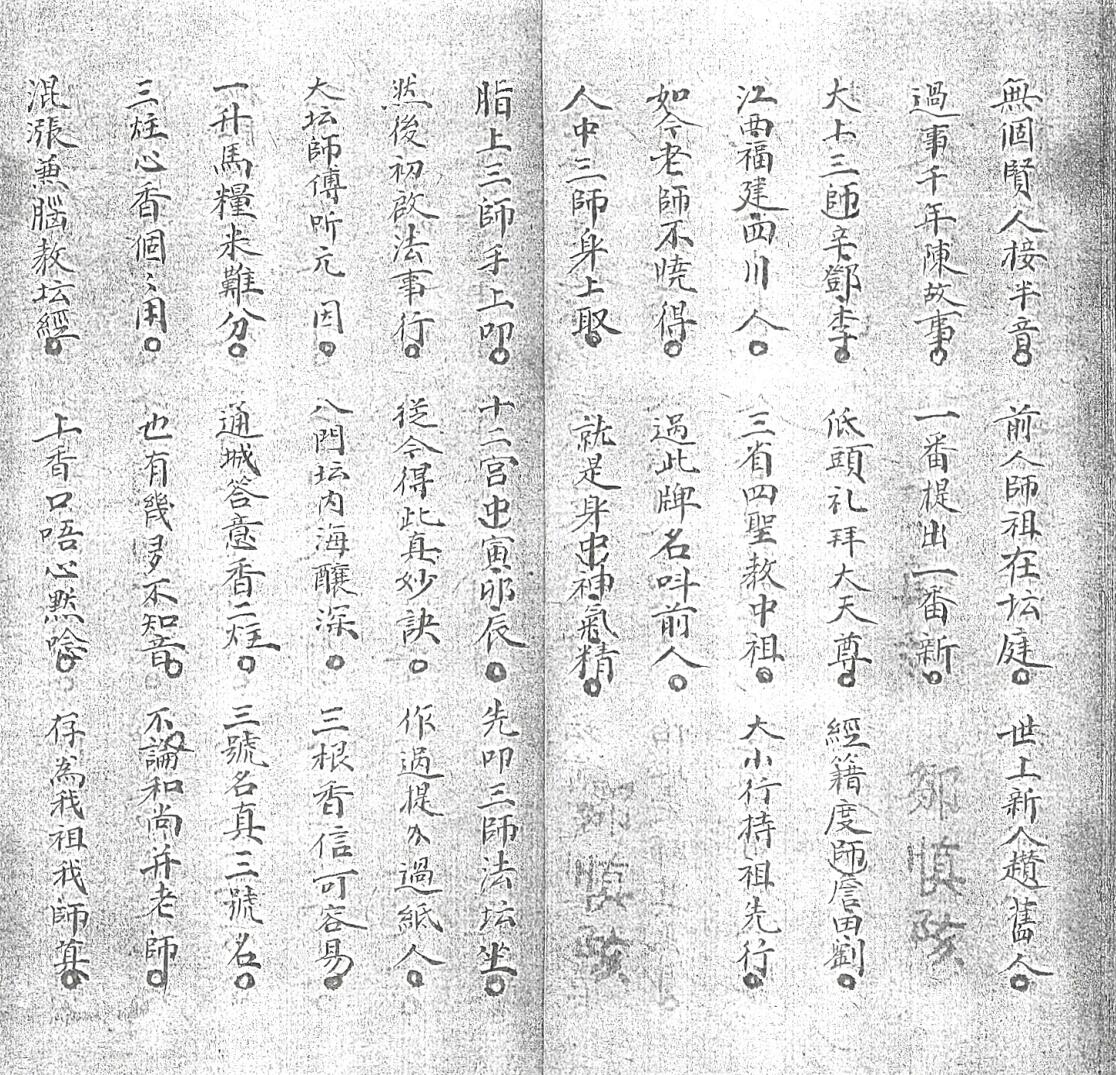 無個賢人接半音。前人師祖在坛庭。世上新人趲舊人。
過事千年陳故事。一番提出一番新。鄒慎
大上三師辛鄧李。低頭礼拜大天尊。經籍度師詹田劉。
江西福建四川人。三省四聖教中祖。大小行持祖先行。
如今老師不曉得。過此牌名叫前人。
人中三師身上取。就是身中神氣精。
脂上三師手上叩。十二宮中寅卯辰。先叩三師法坛坐。
然後初啟法事行。從今得此真妙訣。作過提 過紙人。
大坛師傅听元因。八門坛内海釀深。三根香信可容易。
一升馬糧米難分。通城答意香二炷。三號名真三號名。
三炷心香個々用。也有幾多不知音。不論和尚并老師。
混漲兼腦教坛經。上香口唔心默唸。存為我祖我師真。